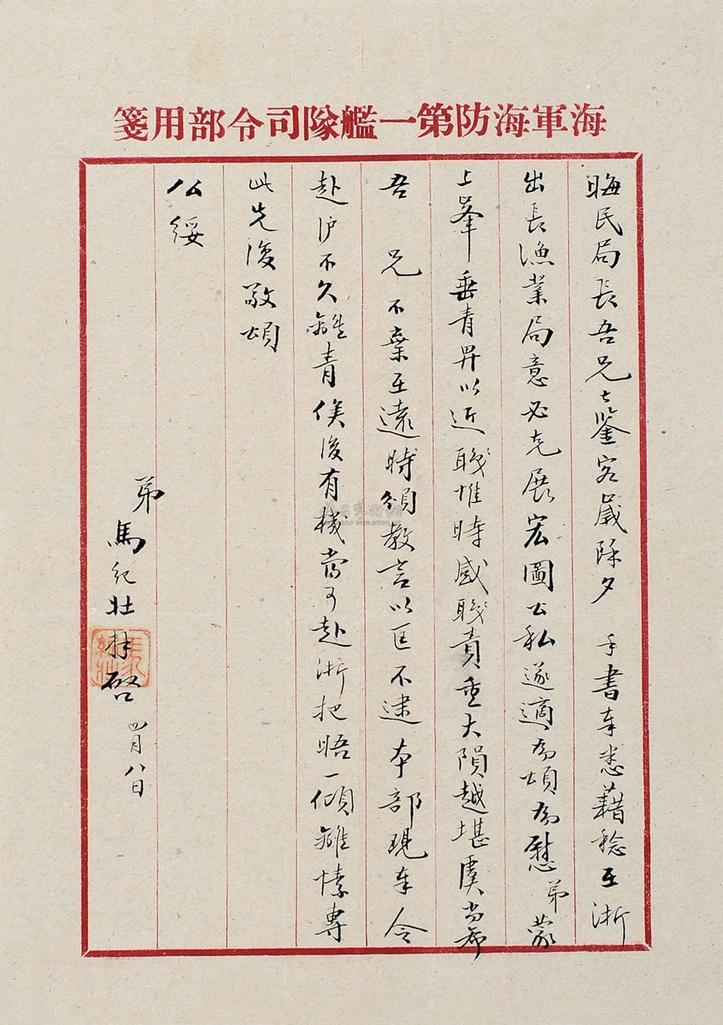 海軍海防第一艦隊司令部用箋
晦民局長吾兄大鑒客歲除夕 手書奉悉藉稔在浙
出長漁業局意必克展宏圖公私遂適為頌為慰弟蒙
上峯垂青畀以近職惟時感職責重大隕越堪虞尚希
吾 兄不棄在遠時頒教言以匡不逮本部現奉令
赴滬不久離青俟後有機當可赴浙把晤一傾離愫專
此先復敬頌
公綏
弟馬紀壯拜啓 四月八日